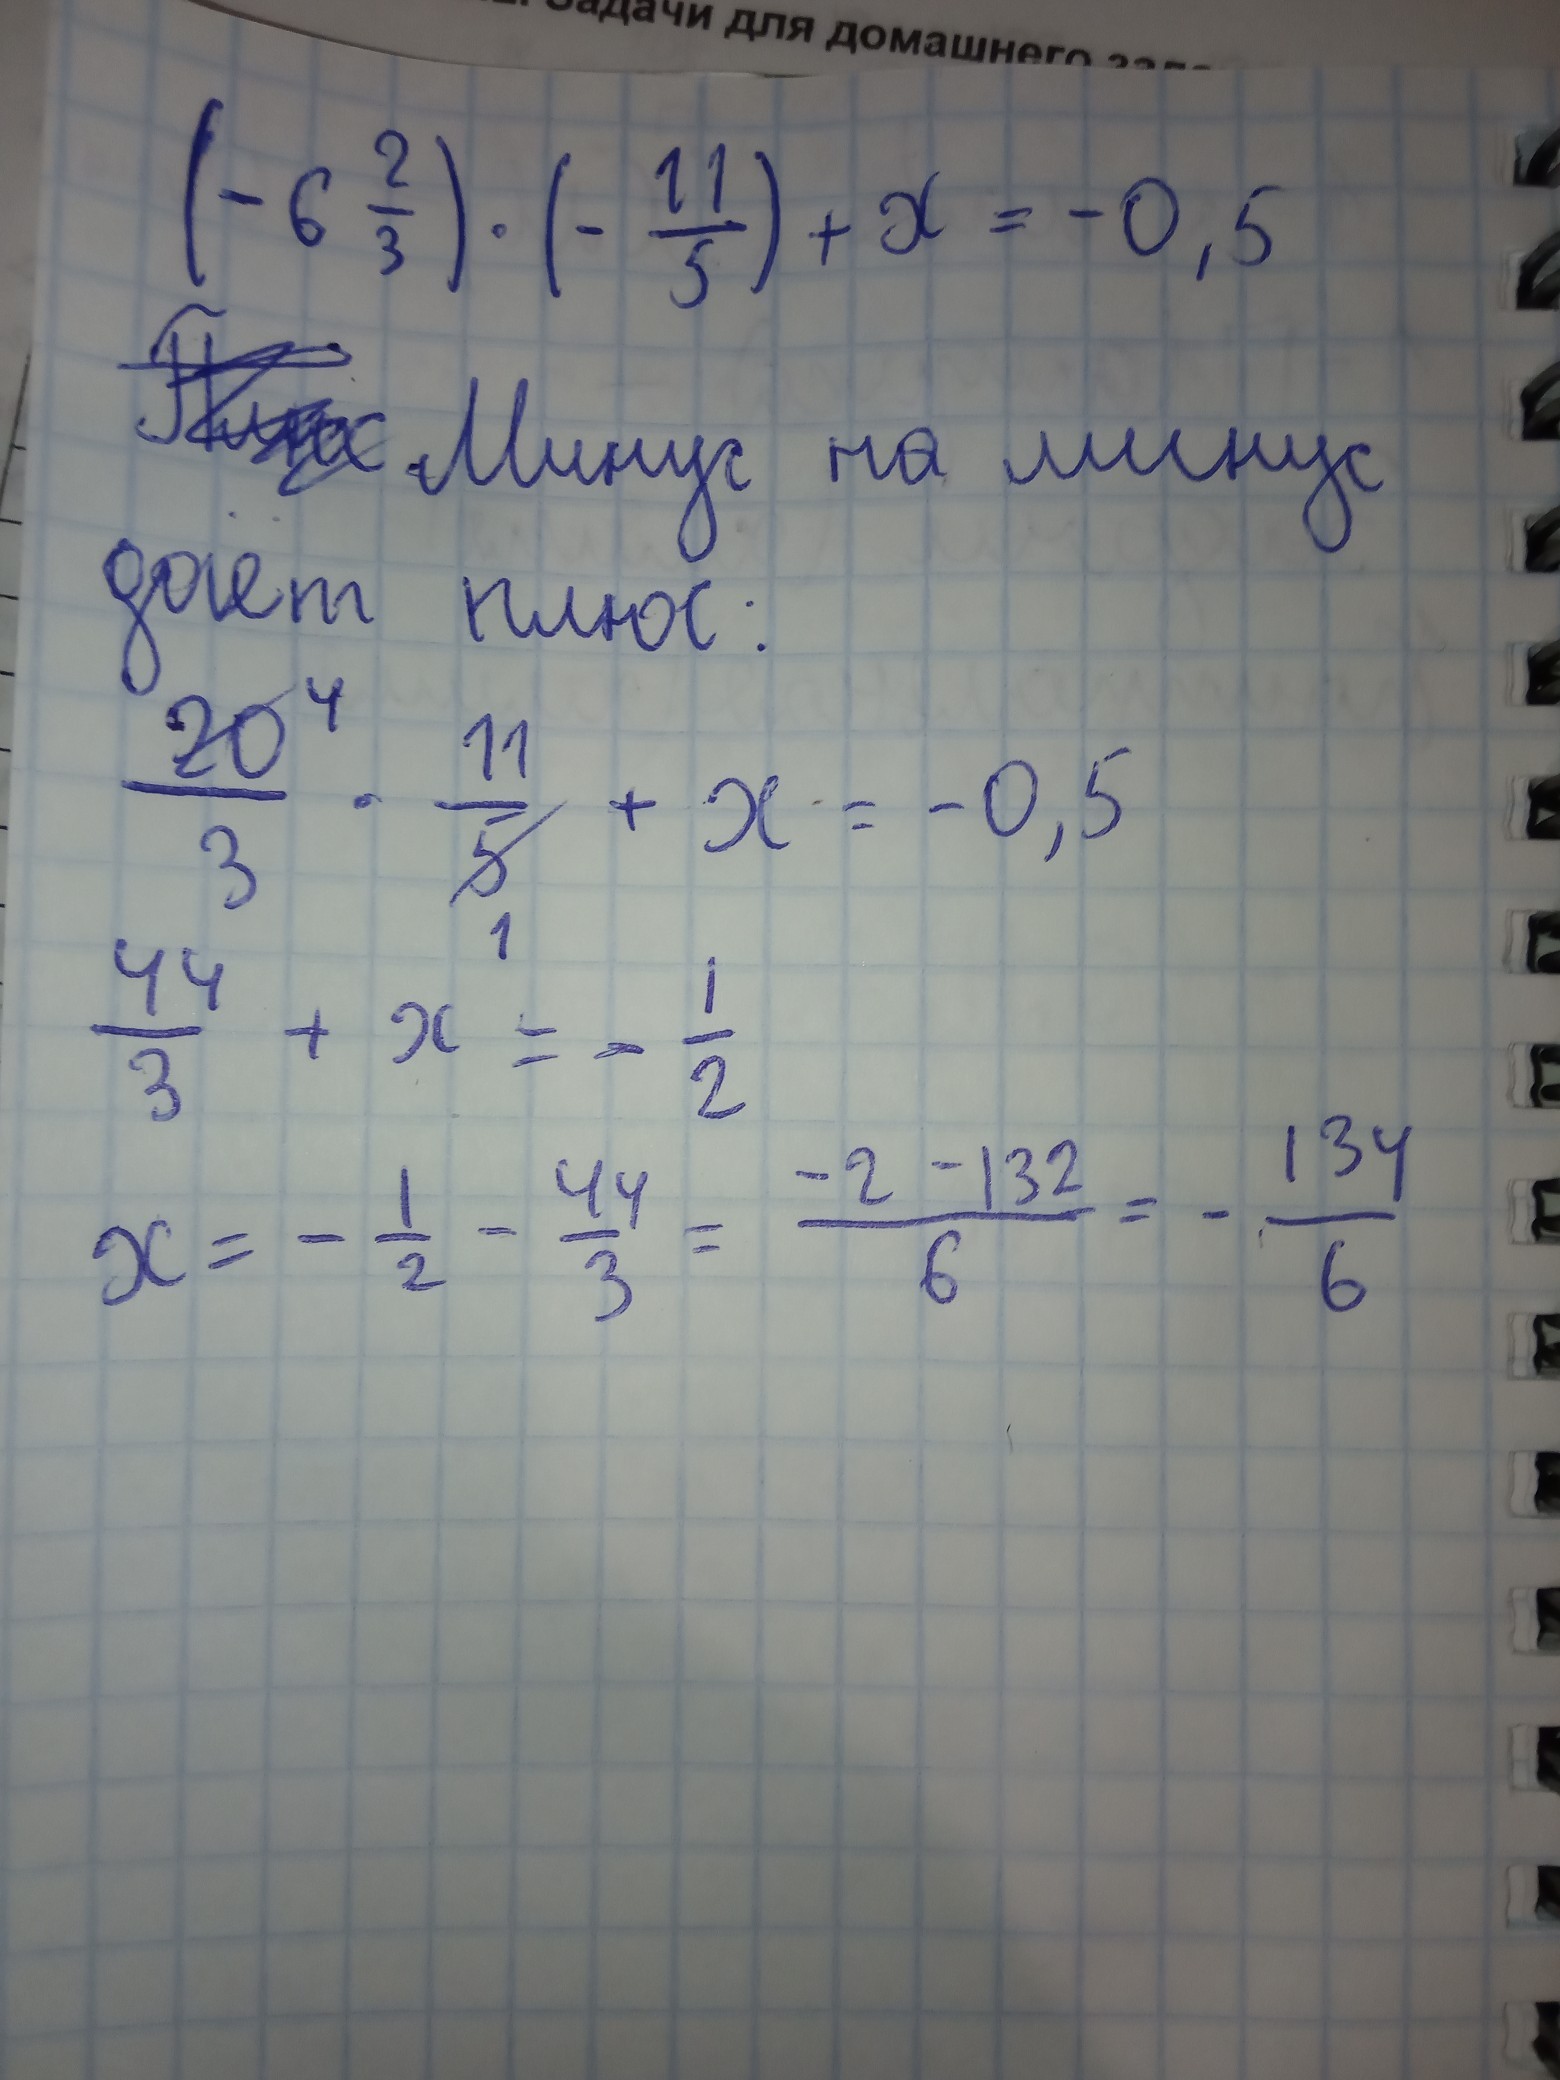 Задачи для домашнего
(-6 2/3) · (- 11/5) + x = -0,5
Минус на минус
даёт плюс:
20 4/3 · 11/5 1 + x = -0,5
44/3 + x = - 1/2
x = - 1/2 - 44/3 = -2 -132/6 = - 134/6